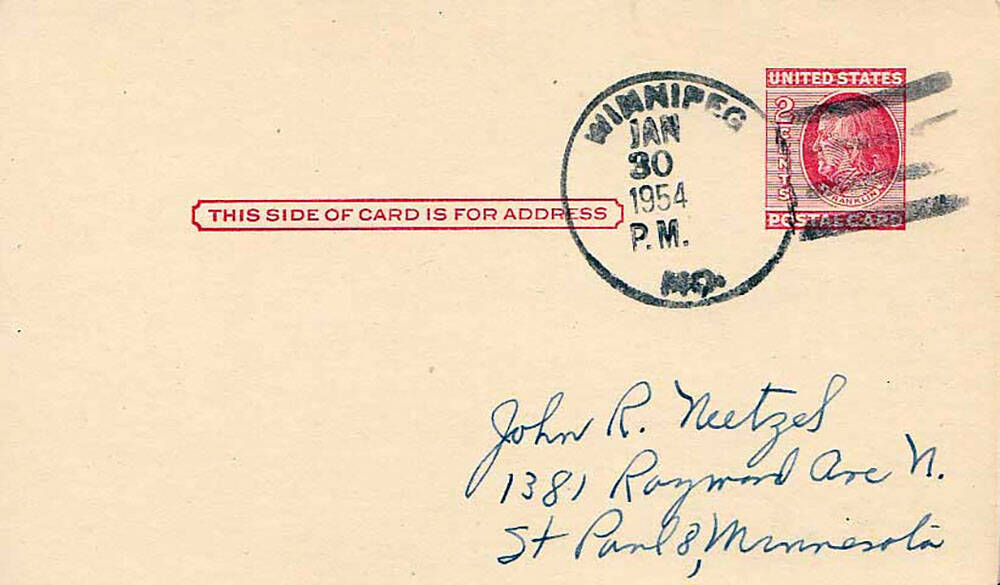 UNITED STATES
2 CENTS
FRANKLIN
POSTAL CARD
WINNIPEG
JAN
30
1954
P.M.
MO.
THIS SIDE OF CARD IS FOR ADDRESS
John R. Neetzel
1381 Raymond Ave N.
St Paul 8, Minnesota